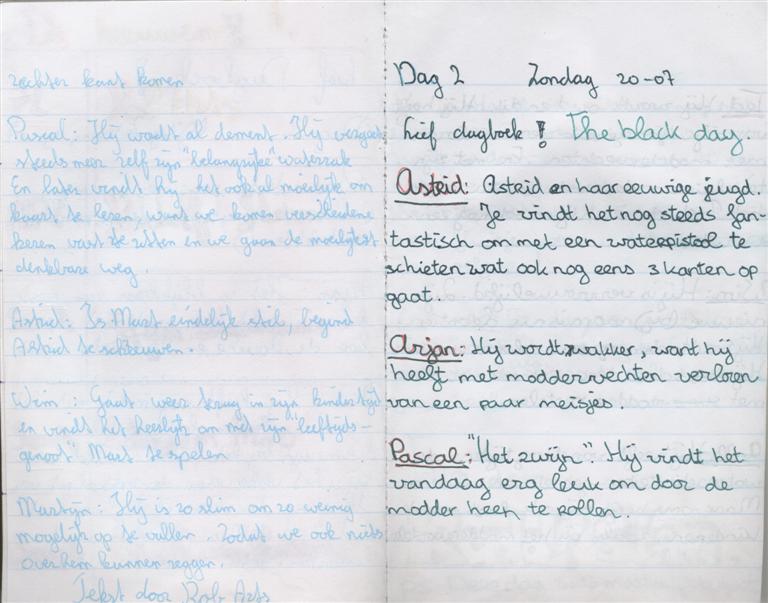 rechter kant komen
Pascal: Hij wordt al dement. Hij vergeet
steeds meer zelf zijn "belangrijke" waterzak
En later vindt hij het ook al moeilijk om
kaart te lezen, want we komen verscheidene
keren vast te zitten en we gaan de moeilijkst
denkbare weg.
Astrid: Is Mart eindelijk stil, begint
Astrid te schreeuwen.
Wim: Gaat weer terug in zijn kindertijd
en vindt het heerlijk om met zijn "leeftijds-
genoot" Mart te spelen
Martijn: Hij is zo slim om zo weinig
mogelijk op te vallen. Zodat we ook niets
over hem kunnen zeggen.
Tekst door Rob Arts
Dag 2 Zondag 20-07
Lief dagboek! The black day.
Astrid: Astrid en haar eeuwige jeugd.
Je vindt het nog steeds fan-
tastisch om met een waterpistool te
schieten wat ook nog eens 3 kanten op
gaat.
Arjan: Hij wordt zwakker, want hij
heeft met moddervechten verloren
van een paar meisjes.
Pascal: "Het zwijn". Hij vindt het
vandaag erg leuk om door de
modder heen te rollen.